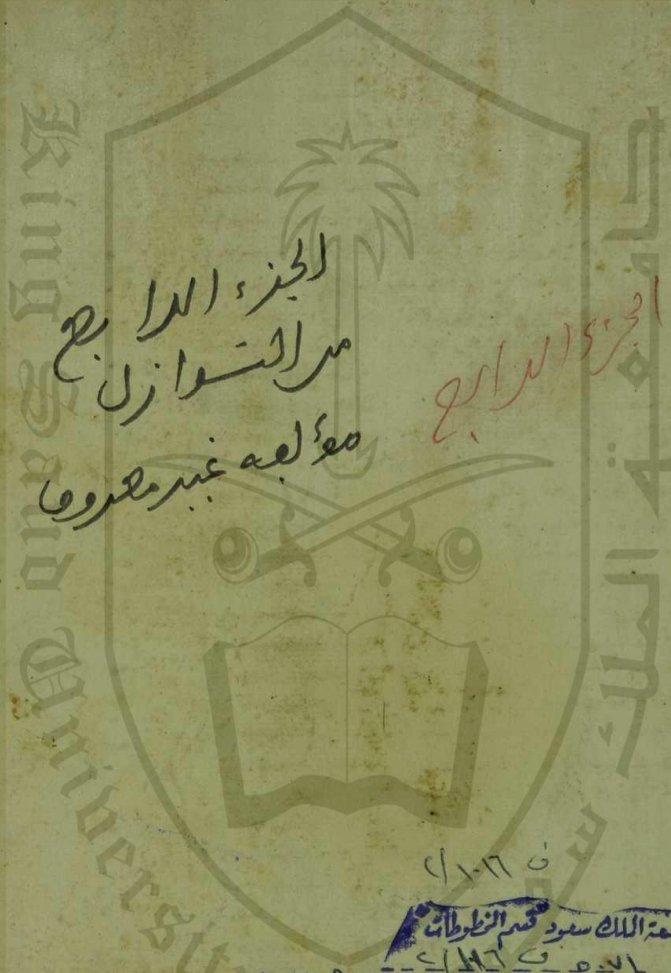 الجزء الرابع
من النوازل
مؤلفه غير معروف
الجزء الرابع
King Saud University
جامعة الملك سعود
ف ١٠١٦/٢
جامعة الملك سعود قسم المخطوطات